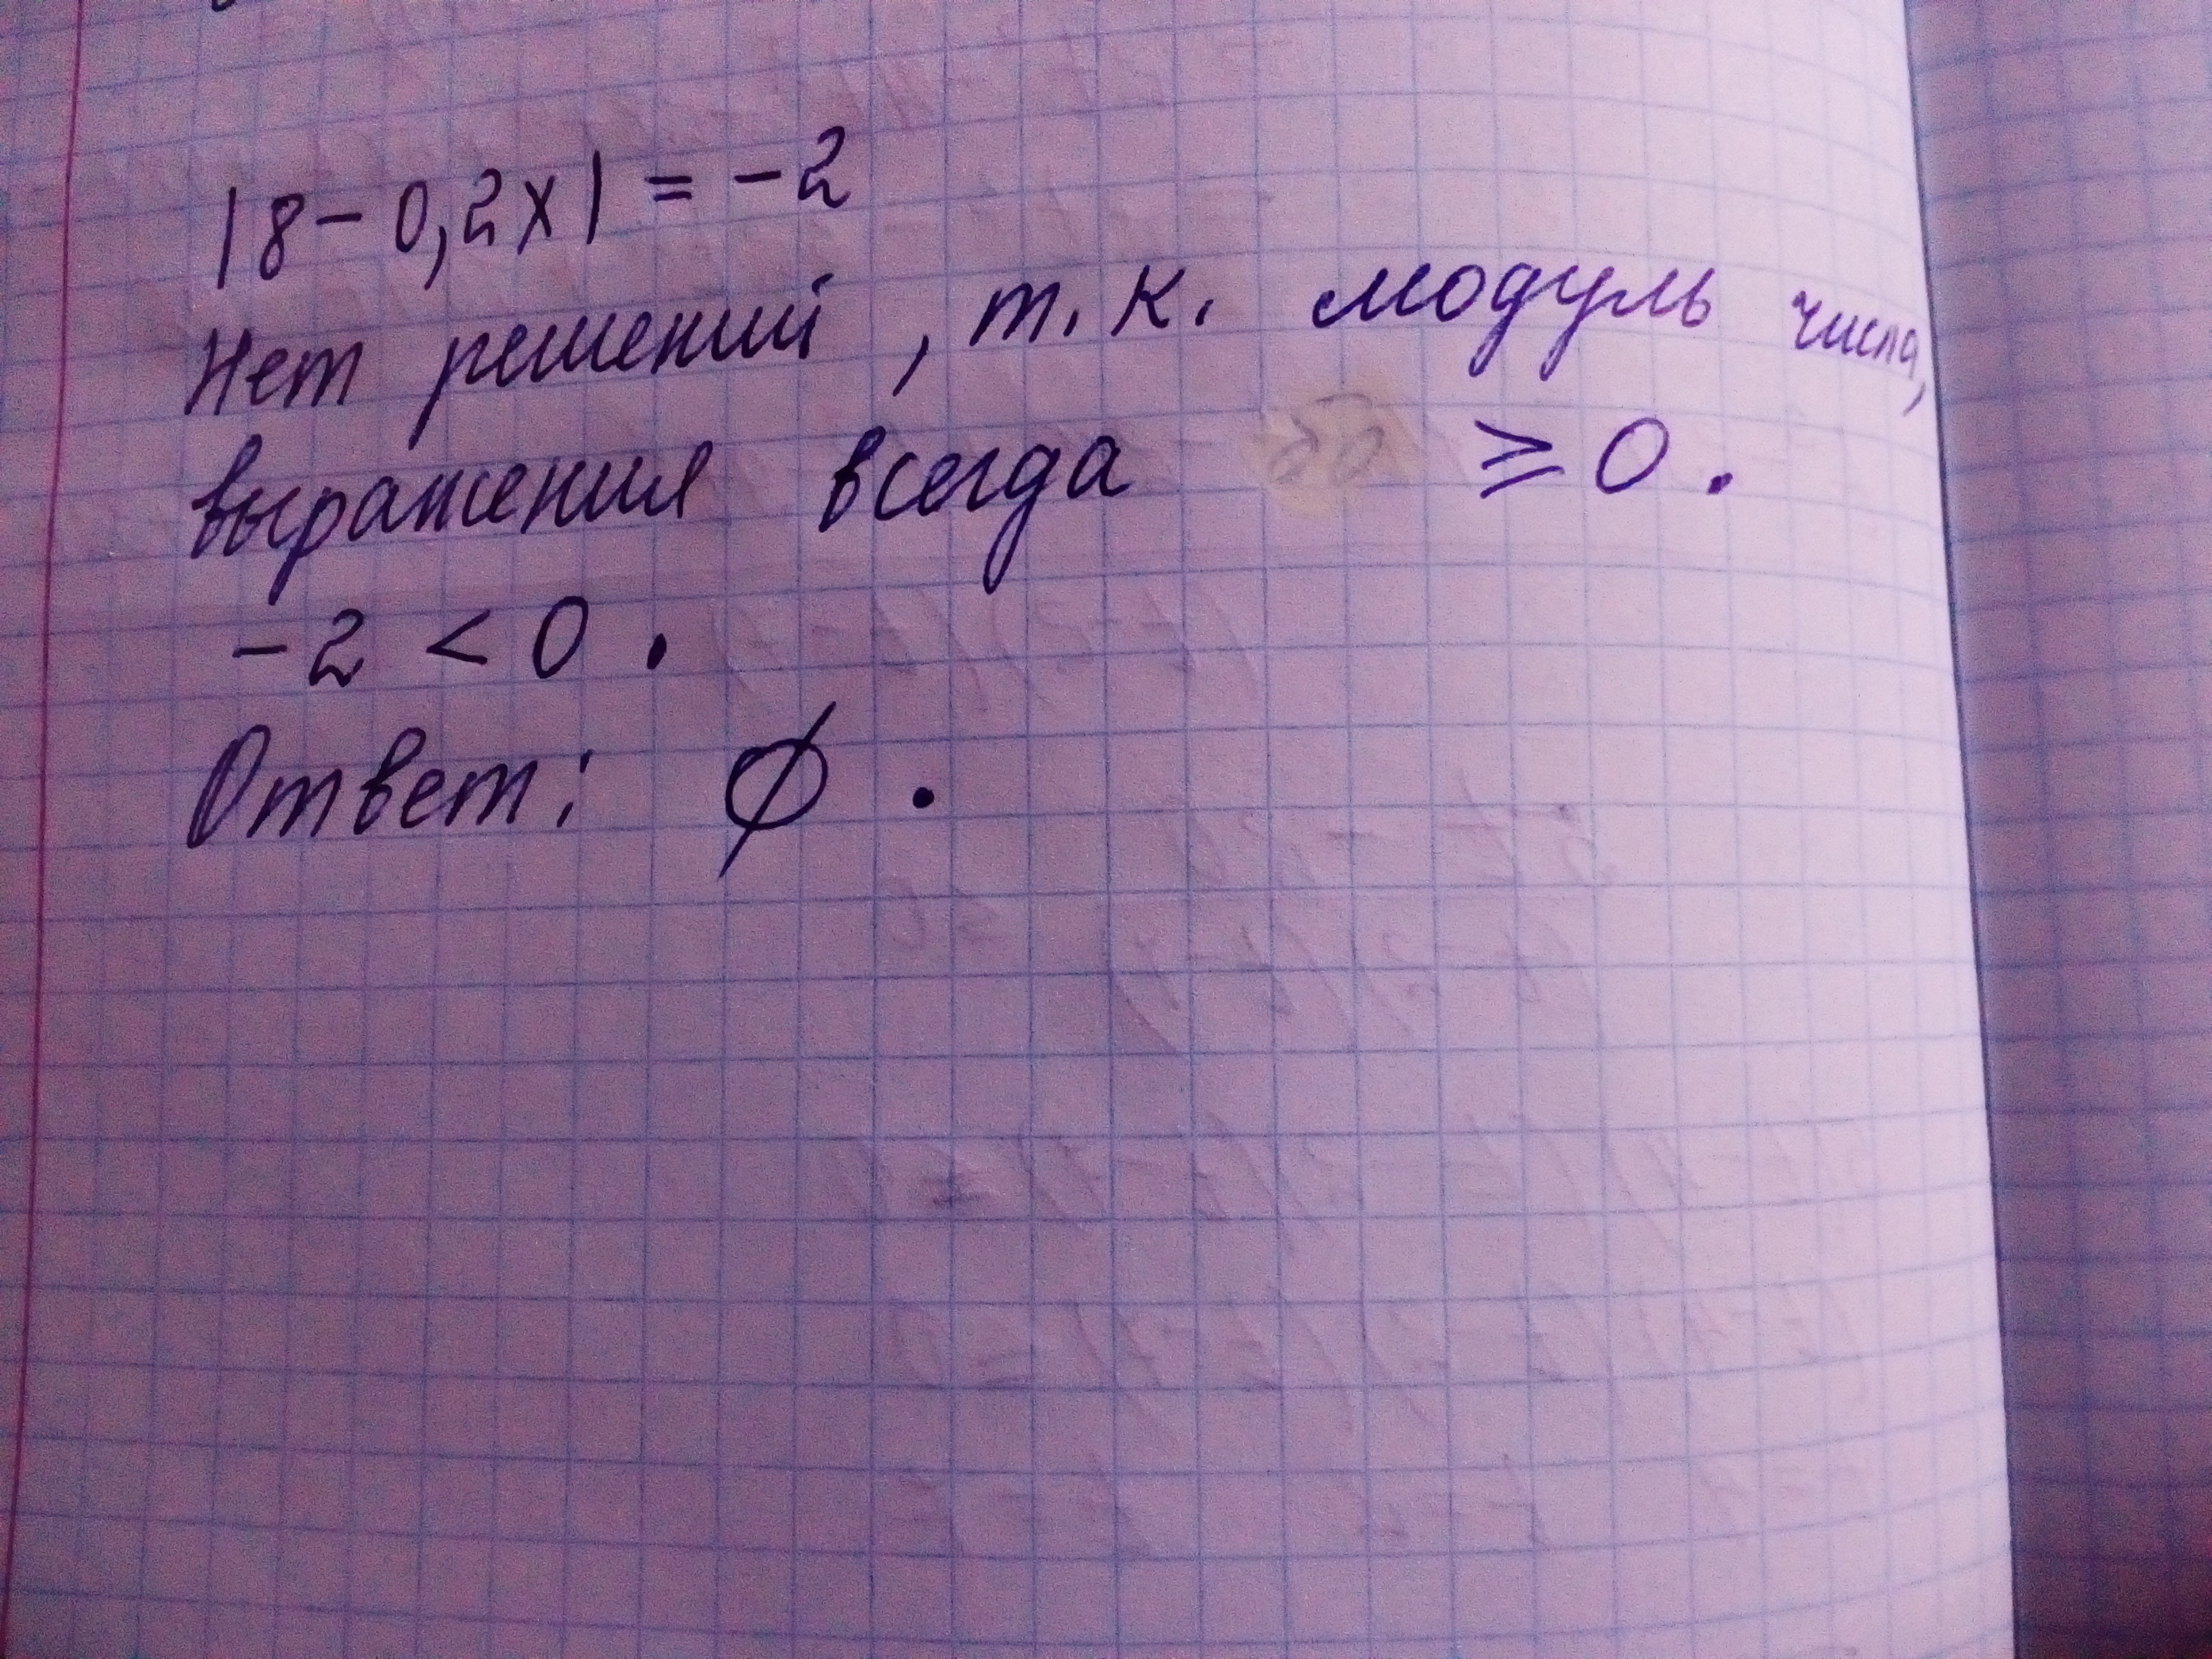 |8-0,2x|=-2
Нет решений, т.к. модуль числа,
выражения всегда ≥0.
-2<0.
Ответ: ∅.